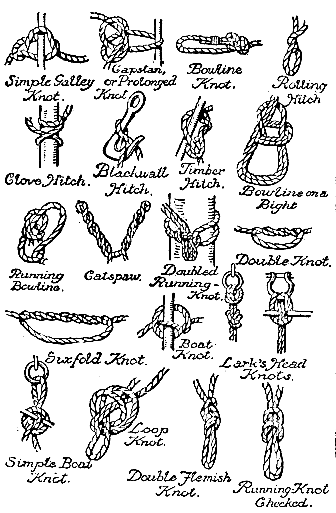 Simple Galley
Knot.
Capstan,
or Prolonged
Knot.
Bowline
Knot.
Rolling
Hitch
Clove Hitch.
Blackwall
Hitch.
Timber
Hitch.
Bowline on a
Bight
Running
Bowline.
Catspaw.
Doubled
Running-
Knot.
Double Knot.
Sixfold Knot.
Boat
Knot.
Lark's Head
Knots.
Simple Boat
Knot.
Loop
Knot.
Double Flemish
Knot.
Running-Knot
Checked.